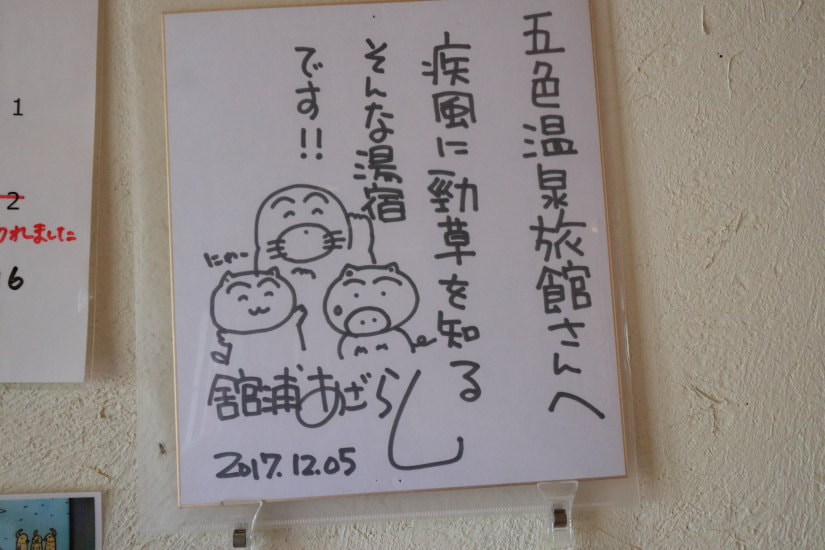 五色温泉旅館さんへ
疾風に勁草を知る
そんな湯宿
です!!
にゃー
舘浦あざらし
2017.12.05
1
2
れました
16